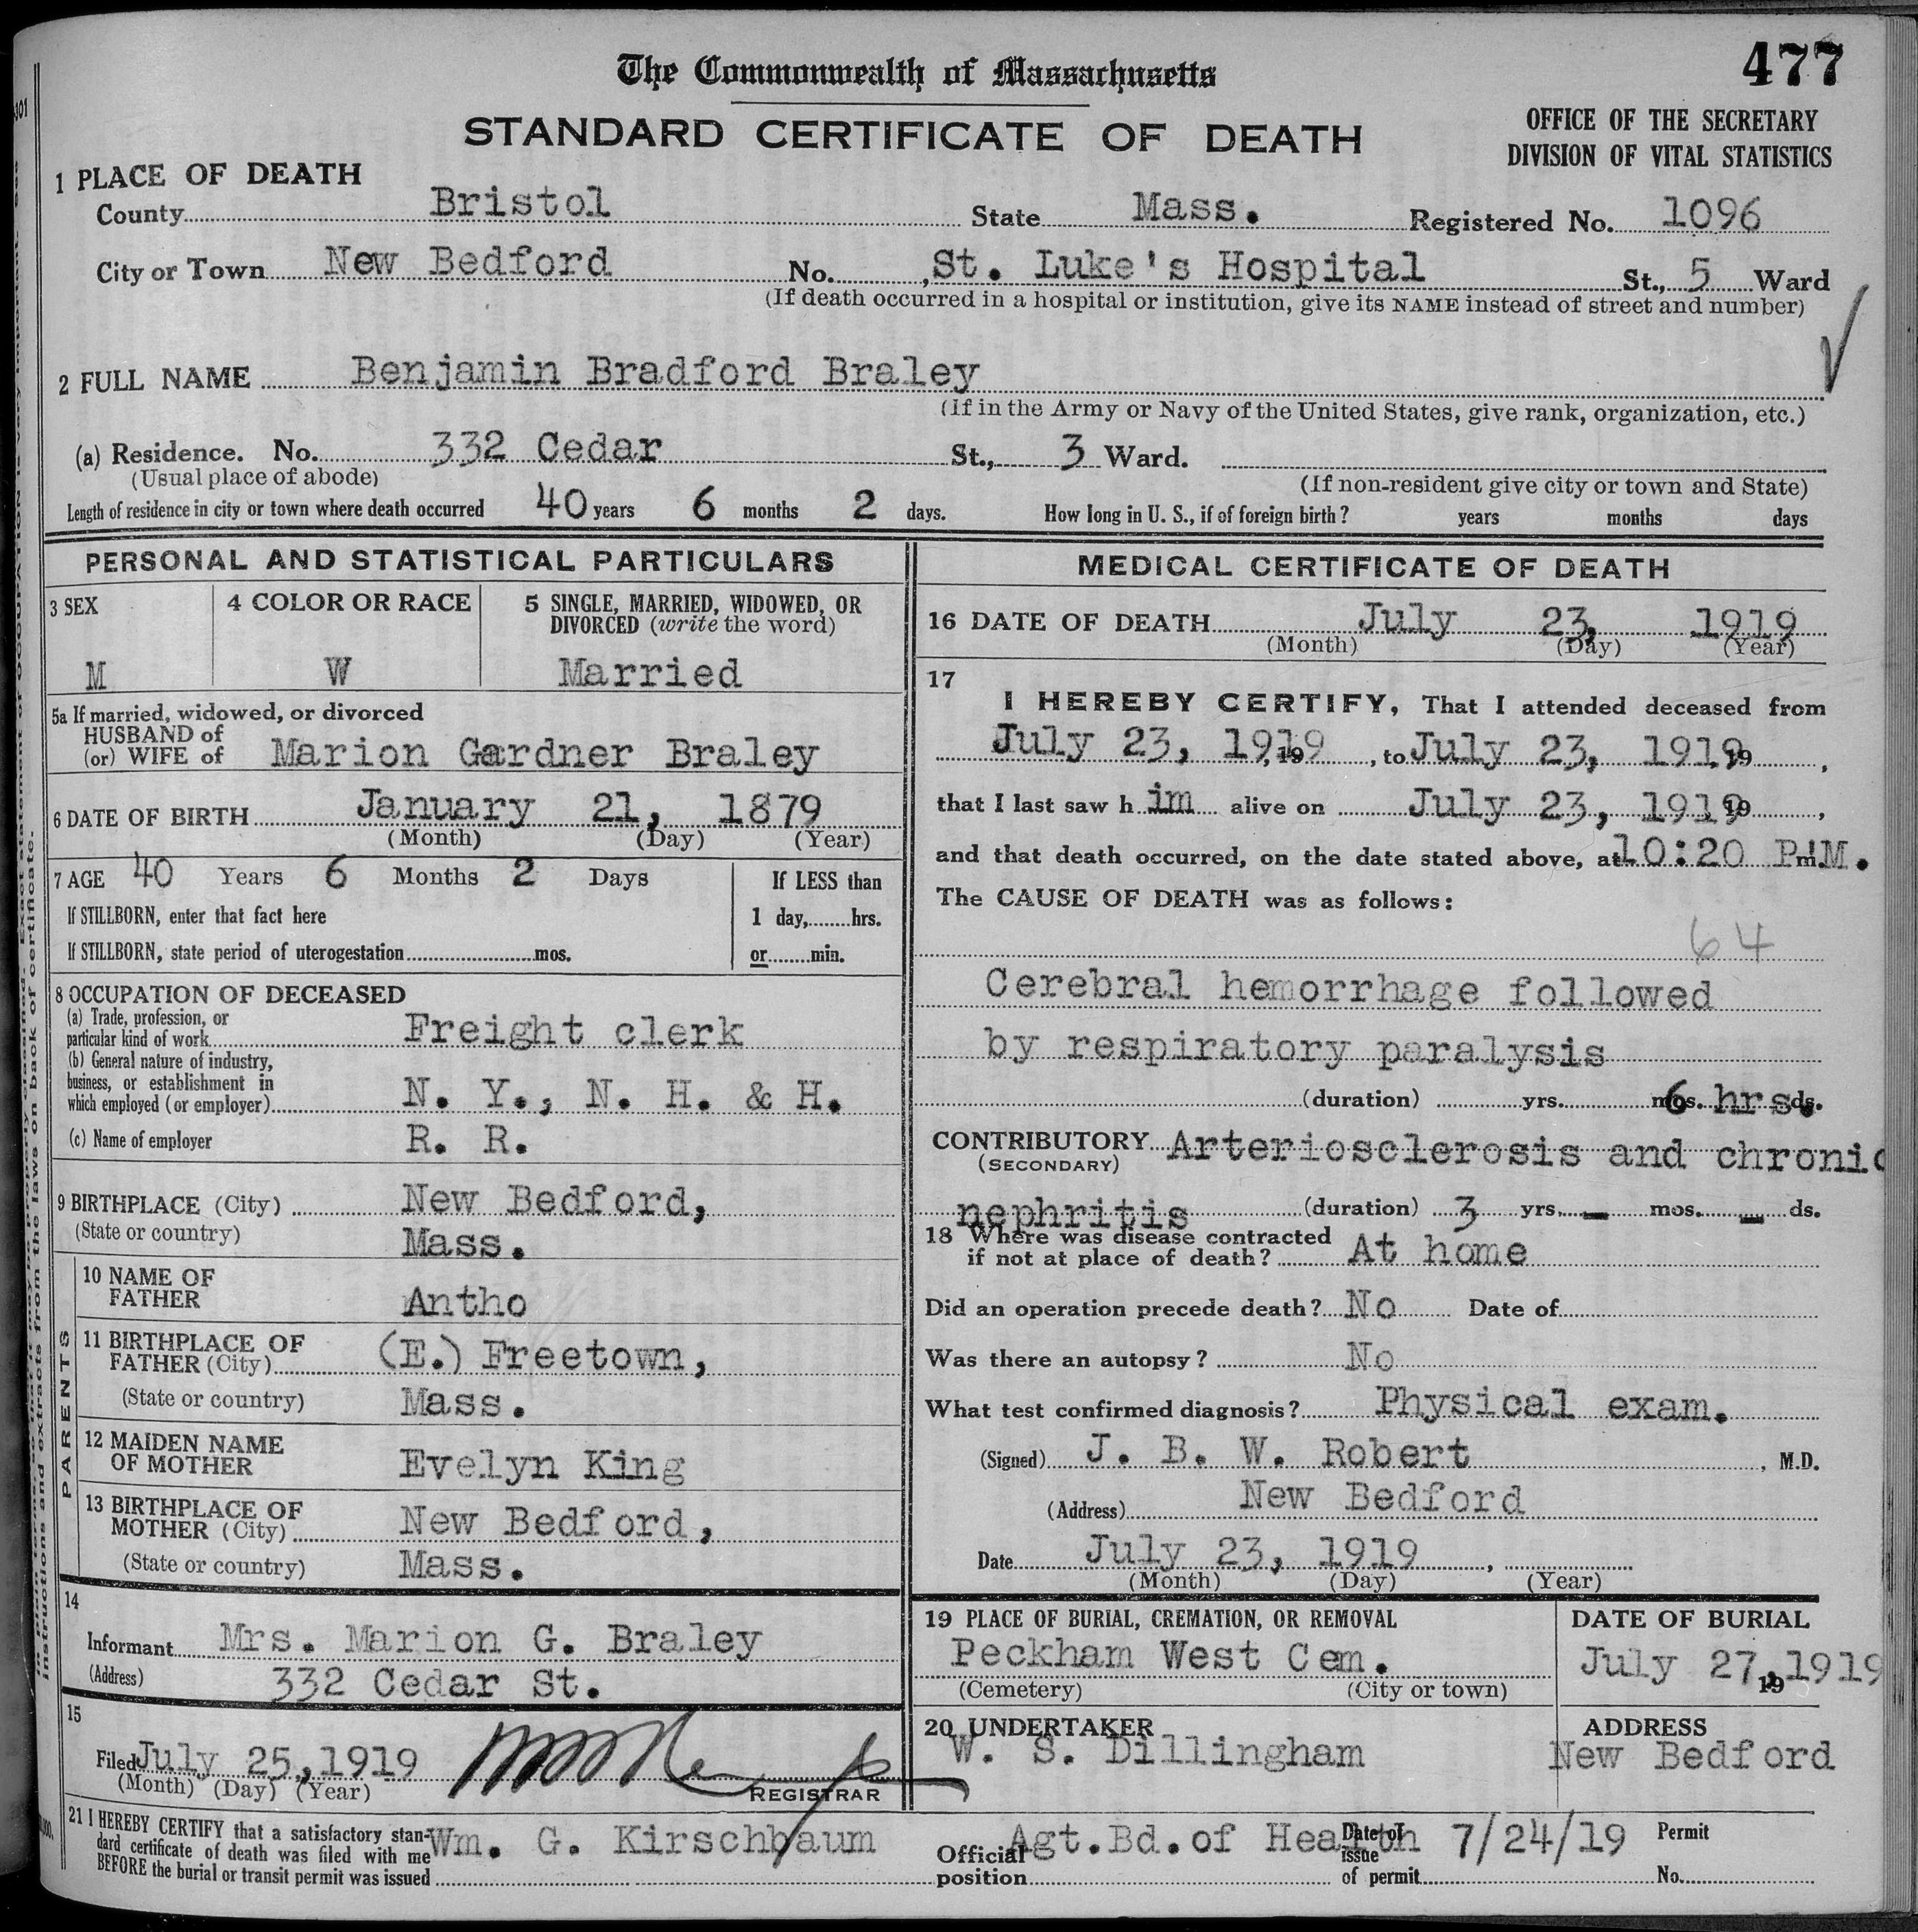 The Commonwealth of Massachusetts
477
STANDARD CERTIFICATE OF DEATH
OFFICE OF THE SECRETARY
DIVISION OF VITAL STATISTICS
1 PLACE OF DEATH
County Bristol State Mass. Registered No. 1096
City or Town New Bedford No. , St. Luke's Hospital St., 5 Ward
(If death occurred in a hospital or institution, give its NAME instead of street and number)
2 FULL NAME Benjamin Bradford Braley
(If in the Army or Navy of the United States, give rank, organization, etc.)
(a) Residence. No. 332 Cedar St., 3 Ward.
(Usual place of abode) (If non-resident give city or town and State)
Length of residence in city or town where death occurred 40 years 6 months 2 days. How long in U. S., if of foreign birth? years months days
PERSONAL AND STATISTICAL PARTICULARS
3 SEX 4 COLOR OR RACE 5 SINGLE, MARRIED, WIDOWED, OR
DIVORCED (write the word)
M W Married
5a If married, widowed, or divorced
HUSBAND of
(or) WIFE of Marion Gardner Braley
6 DATE OF BIRTH January 21, 1879
(Month) (Day) (Year)
7 AGE 40 Years 6 Months 2 Days If LESS than
If STILLBORN, enter that fact here 1 day, hrs.
If STILLBORN, state period of uterogestation mos. or min.
8 OCCUPATION OF DECEASED
(a) Trade, profession, or
particular kind of work Freight clerk
(b) General nature of industry,
business, or establishment in
which employed (or employer) N. Y., N. H. & H.
(c) Name of employer R. R.
9 BIRTHPLACE (City) New Bedford,
(State or country) Mass.
PARENTS
10 NAME OF
FATHER Antho
11 BIRTHPLACE OF
FATHER (City) (E.) Freetown,
(State or country) Mass.
12 MAIDEN NAME
OF MOTHER Evelyn King
13 BIRTHPLACE OF
MOTHER (City) New Bedford,
(State or country) Mass.
14
Informant Mrs. Marion G. Braley
(Address) 332 Cedar St.
15
Filed July 25, 1919
(Month) (Day) (Year) REGISTRAR
MEDICAL CERTIFICATE OF DEATH
16 DATE OF DEATH July 23, 1919
(Month) (Day) (Year)
17
I HEREBY CERTIFY, That I attended deceased from
July 23, 1919 , 19 , to July 23, 1919 19 ,
that I last saw him alive on July 23, 1919 19 ,
and that death occurred, on the date stated above, at 10:20 P.M. m.
The CAUSE OF DEATH was as follows:
64
Cerebral hemorrhage followed
by respiratory paralysis
(duration) yrs. mos. 6 hrs. ds.
CONTRIBUTORY Arteriosclerosis and chronic
(SECONDARY)
nephritis (duration) 3 yrs. - mos. - ds.
18 Where was disease contracted
if not at place of death? At home
Did an operation precede death? No Date of
Was there an autopsy? No
What test confirmed diagnosis? Physical exam.
(Signed) J. B. W. Robert , M.D.
(Address) New Bedford
Date July 23, 1919 ,
(Month) (Day) (Year)
19 PLACE OF BURIAL, CREMATION, OR REMOVAL DATE OF BURIAL
Peckham West Cem. July 27, 1919
(Cemetery) (City or town) 19
20 UNDERTAKER ADDRESS
W. S. Dillingham New Bedford
21 I HEREBY CERTIFY that a satisfactory stan-
dard certificate of death was filed with me Wm. G. Kirschbaum
BEFORE the burial or transit permit was issued
Official Agt. Bd. of Health Date of 7/24/19 Permit
position issue of permit No.
instructions and extracts from the laws on back of certificate.